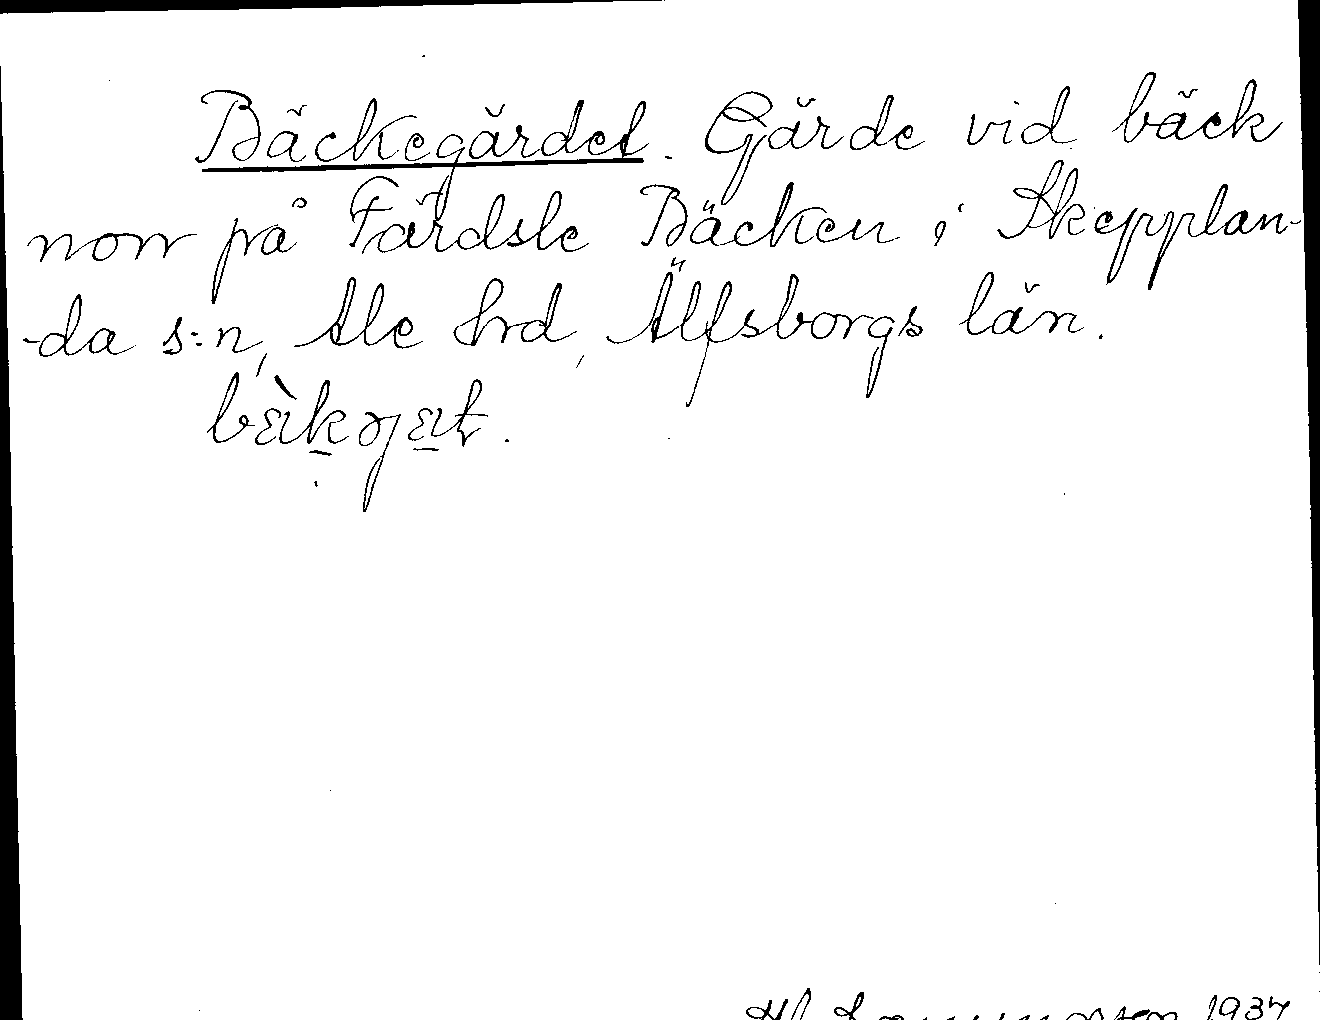 Bäckegärdet. Gärde vid bäck
norr på Färdsle Bäcken i Skepplan-
-da s:n, Ale hrd, Älfsborgs län.
1937